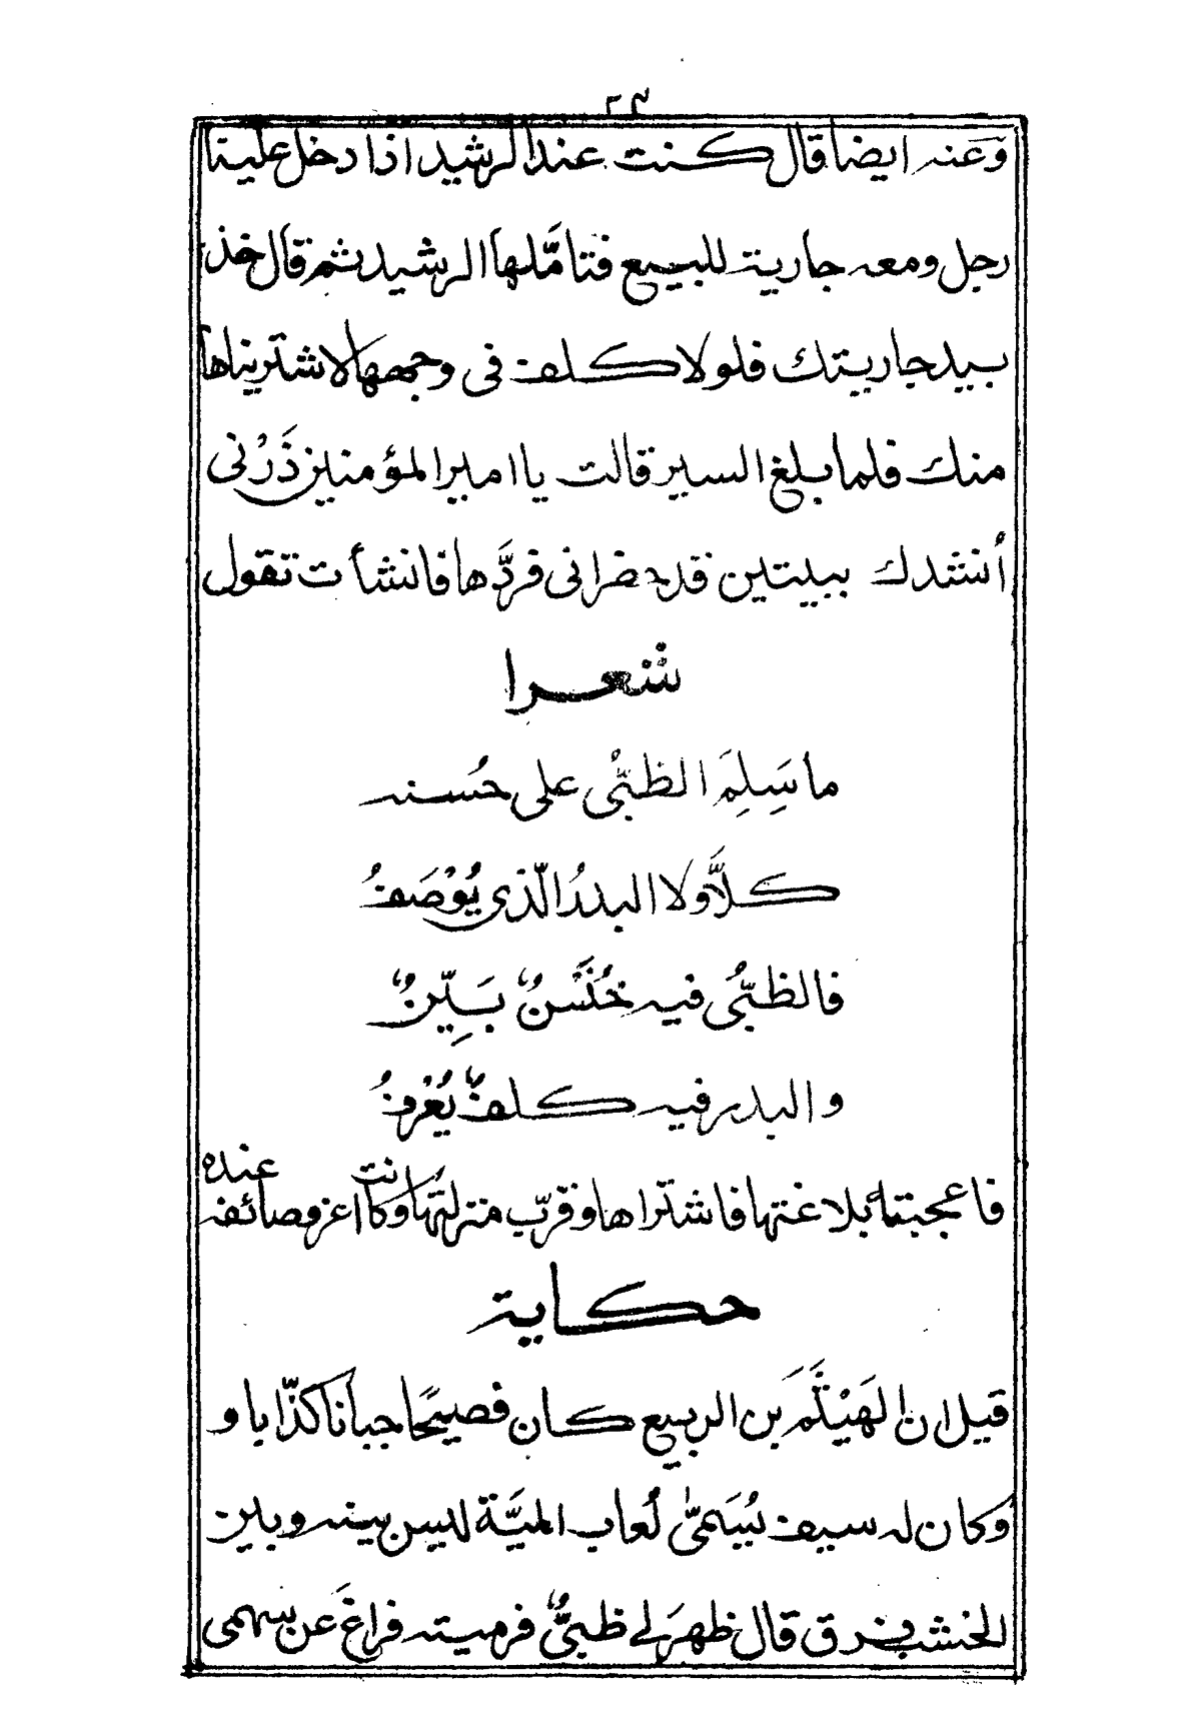 ٢٤
وعنه ايضا قال كنت عند الرشيد اذا دخل علينا
رجل ومعه جارية للبيع فتامَّلها الرشيد ثم قال خذ
بيد جاريتك فلولا كلف فى وجهها لاشتريناها
منك فلما بلغ السير قالت يا امير المؤمنين ذَرْنى
أنشدك ببيتين قد حضرانى فردَّها فانشأت تقول
شعرا
ما سَلِمَ الظبىُ على حُسنه
كلَّا ولا البدرُ الّذى يُوْصَفُ
فالظبىُ فيه خُنَسٌ بَيِّنٌ
والبدر فيه كلفٌ يُعْرفُ
فاعجبته بلاغتها فاشتراها وقرّب منزلتها وكانت اعز وصائفه عنده
حكاية
قيل ان الهَيْثَمَ بن الربيع كان فصيحًا جبانا كذّابا و
وكان له سيف يُسَمىّٰ لُعاب المنيَّة ليس بينه وبين
الخشب فرق قال ظهرَ لى ظبىٌ فرميته فراغَ عن سهمى